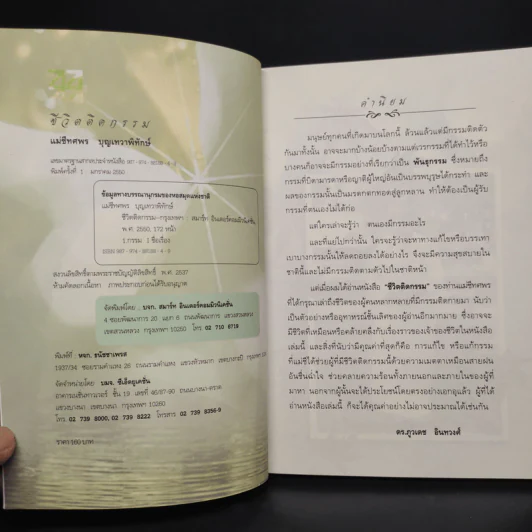 ชีวิตติดกรรม
แม่ชีทศพร บุญเทวาพิทักษ์
เลขมาตรฐานสากลประจำหนังสือ
พิมพ์ครั้งที่ 1 มกราคม 2550
ข้อมูลทางบรรณานุกรมของหอสมุดแห่งชาติ
แม่ชีทศพร บุญเทวาพิทักษ์
ชีวิตติดกรรม--กรุงเทพฯ : สมาร์ท อินเตอร์คอมมิวนิเคชั่น,
พ.ศ. 2550, 172 หน้า
1.กรรม. I ชื่อเรื่อง
สงวนลิขสิทธิ์ตามพระราชบัญญัติลิขสิทธิ์ พ.ศ. 2537
ห้ามคัดลอกเนื้อหา ภาพประกอบก่อนได้รับอนุญาต
จัดพิมพ์โดย : บจก. สมาร์ท อินเตอร์คอมมิวนิเคชั่น
4 ซอยพัฒนาการ 20 แยก 6 ถนนพัฒนาการ แขวงสวนหลวง
เขตสวนหลวง กรุงเทพฯ 10250 โทร 02 710 8719
พิมพ์ที่ : หจก. ธนัชชาเพรส
จัดจำหน่ายโดย : บมจ. ซีเอ็ดยูเคชั่น
อาคารเนชั่นทาวเวอร์ ชั้น 19 เลขที่ 46/87-90 ถนนบางนา-ตราด
แขวงบางนา เขตบางนา กรุงเทพฯ 10260
โทร. 02 739 8000, 02 739 8222 โทรสาร 02 739 8356-9
ราคา 160 บาท
คำนิยม
มนุษย์ทุกคนที่เกิดมาบนโลกนี้ ล้วนแล้วแต่มีกรรมติดตัว
กันมาทั้งนั้น อาจจะมากบ้างน้อยบ้างตามแต่เวรกรรมที่ได้ทำไว้หรือ
บางคนก็อาจจะมีกรรมอย่างที่เรียกว่าเป็น พันธุกรรม ซึ่งหมายถึง
กรรมที่บิดามารดาหรือญาติผู้ใหญ่อันเป็นบรรพบุรุษได้กระทำ และ
ผลของกรรมนั้นเป็นมรดกตกทอดสู่ลูกหลาน ทำให้ต้องเป็นผู้รับ
กรรมที่ตนเองไม่ได้ก่อ
แต่ใครเล่าจะรู้ว่า ตนเองมีกรรมอะไร
และที่แน่ไปกว่านั้น ใครจะรู้ว่าจะหาทางแก้ไขหรือบรรเทา
เบาบางกรรมนั้นให้ลดถอยลงได้อย่างไร จึงจะมีความสุขสบายใน
ชาตินี้และไม่มีกรรมติดตามตัวไปในชาติหน้า
แต่เมื่อผมได้อ่านหนังสือ "ชีวิตติดกรรม" ของท่านแม่ชีทศพร
ที่ได้กรุณาเล่าถึงชีวิตของผู้คนหลากหลายที่มีกรรมติดกายมา นับว่า
เป็นตัวอย่างหรืออุทาหรณ์ชั้นเลิศของผู้อ่านอีกมากมาย ซึ่งอาจจะ
มีชีวิตที่เหมือนหรือคล้ายคลึงกับเรื่องราวของเจ้าของชีวิตในหนังสือ
เล่มนี้ และสิ่งที่นับว่ามีคุณค่าที่สุดก็คือ การแก้ไข หรือแก้กรรม
ที่แม่ชีได้ช่วยผู้ที่มีชีวิตติดกรรมนี้ด้วยความเมตตาเหมือนสายฝน
อันชื่นฉ่ำใจ ช่วยคลายความร้อนทั้งภายนอกและภายในของผู้ที่
มาหา นอกจากผู้นั้นจะได้ประโยชน์โดยตรงอย่างเอกอุแล้ว ผู้ที่ได้
อ่านหนังสือเล่มนี้ ก็จะได้คุณค่าอย่างไม่อาจประมาณได้เช่นกัน
ดร.ภูวเดช อินทวงศ์